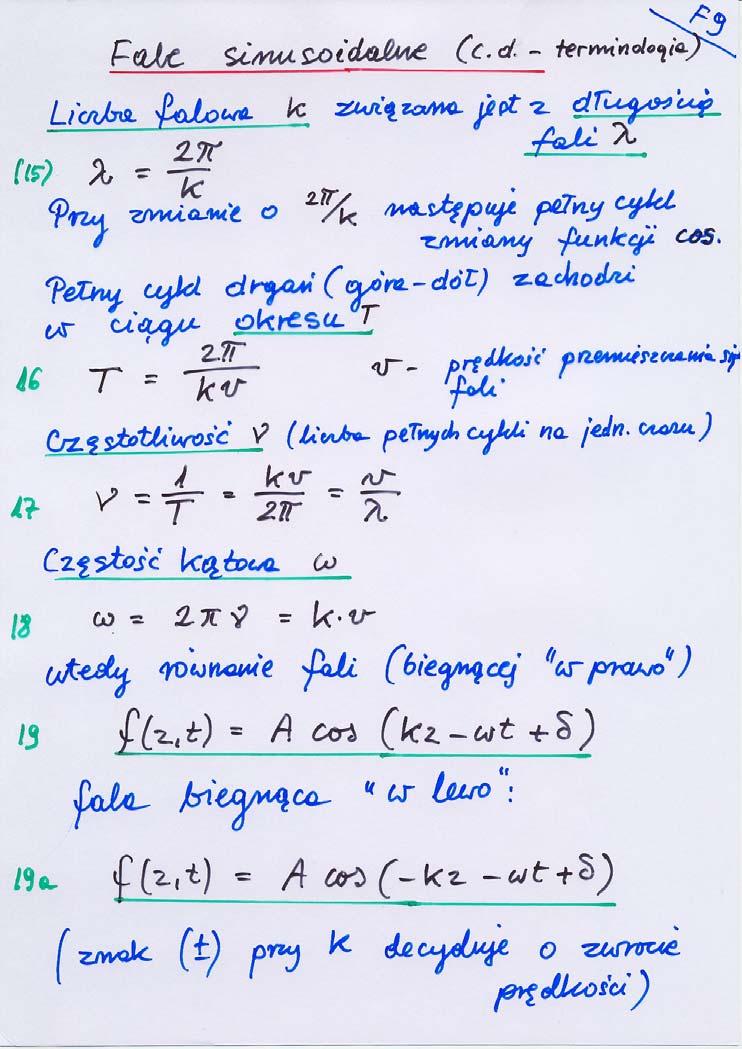 F9
Fale sinusoidalne (c.d. - terminologia)
Liczba falowa k związana jest z długością
fali λ
(15) λ = 2π/k
Przy zmianie o 2π/k następuje pełny cykl
zmiany funkcji cos.
Pełny cykl drgań (góra-dół) zachodzi
w ciągu okresu T
16 T = 2π/kv v - prędkość przemieszczania się
fali
Częstotliwość ν (liczba pełnych cykli na jedn. czasu)
17 ν = 1/T = kv/2π = v/λ
Częstość kątowa ω
18 ω = 2πν = k·v
wtedy równanie fali (biegnącej "w prawo")
19 f(z,t) = A cos (kz - ωt + δ)
fala biegnąca "w lewo":
19a f(z,t) = A cos (-kz - ωt + δ)
(znak (±) przy k decyduje o zwrocie
prędkości)